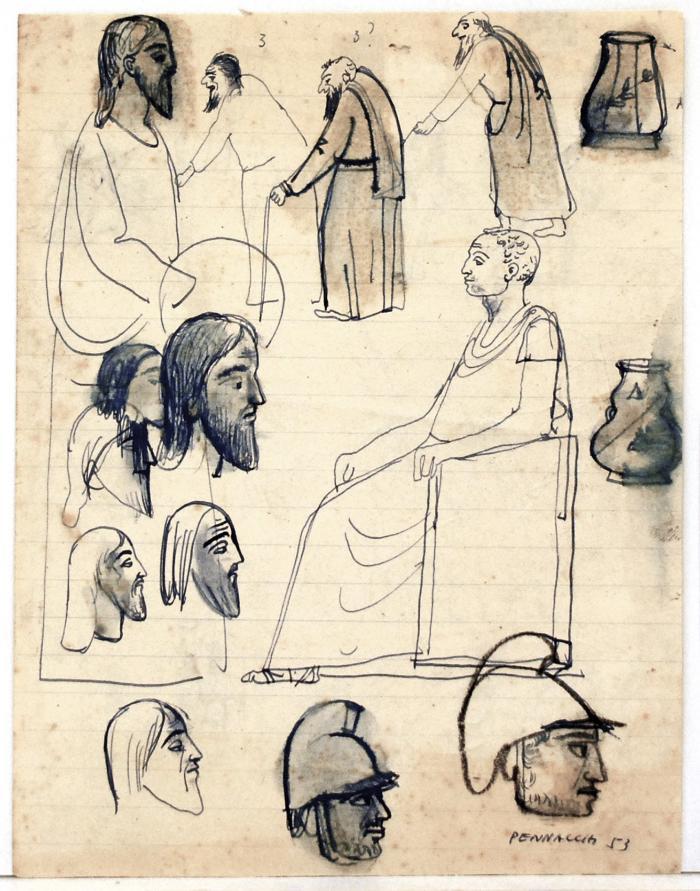 3
3?
PENNACCHI 53